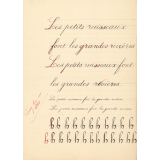 Les petits ruisseaux
font les grandes rivières
Les petits ruisseaux font
les grandes rivières.
Les petits ruisseaux font les grandes rivières
Les petits ruisseaux font les grandes rivières